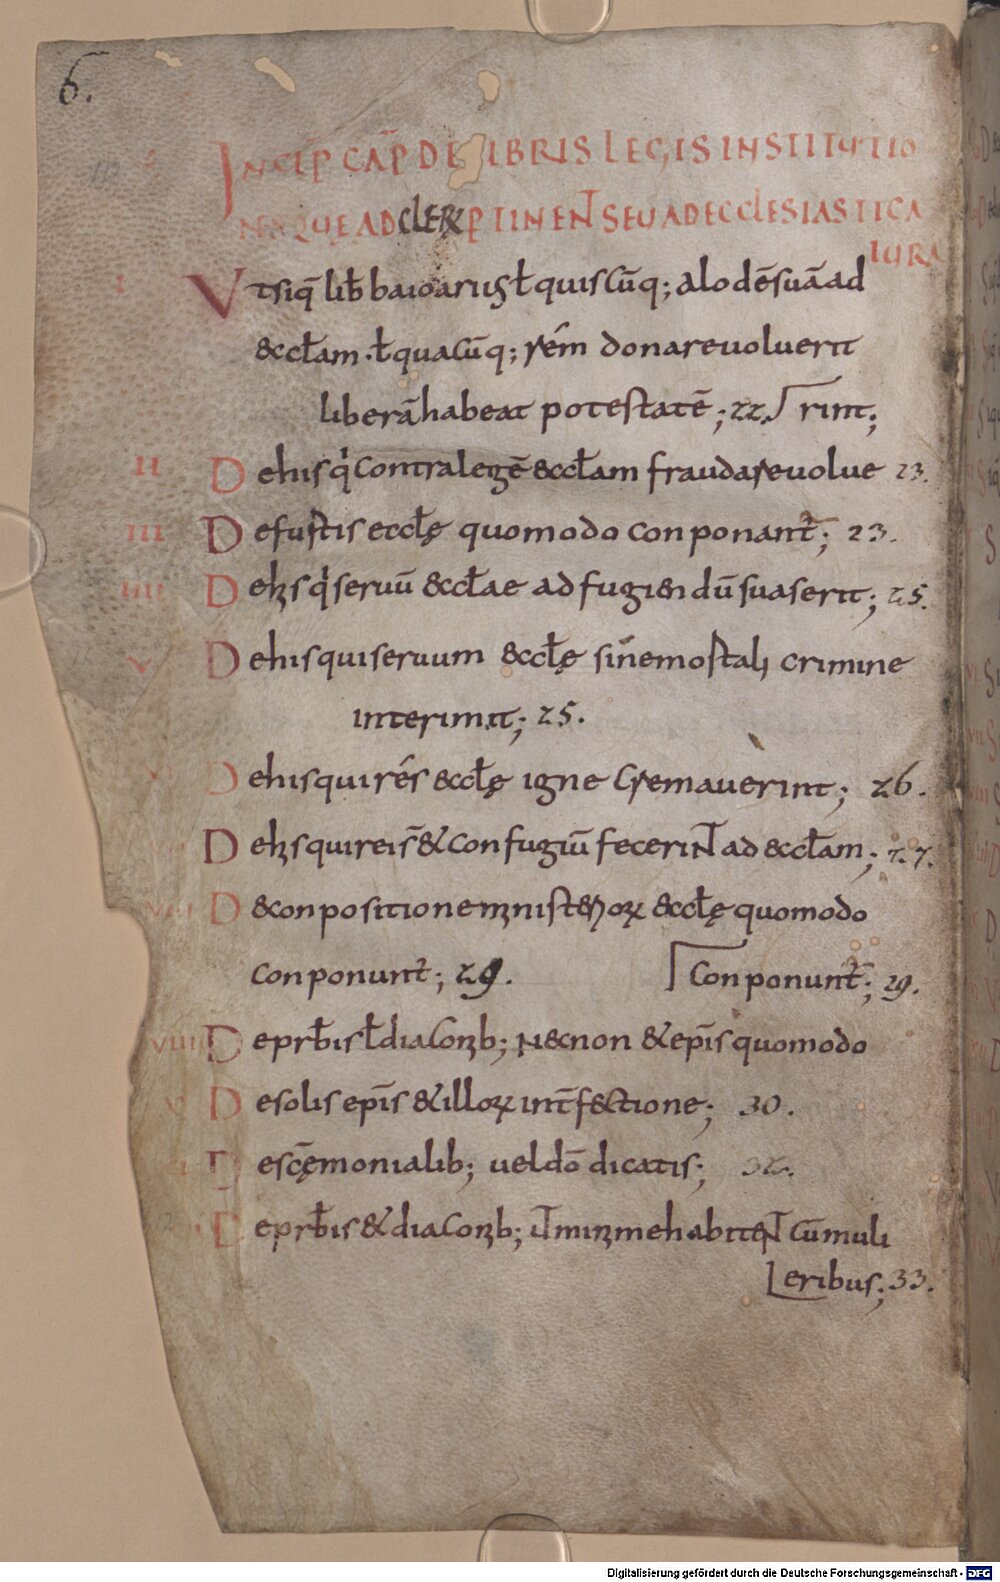 6.
INCIP̄ CAP̄ DE LIBRIS LEGIS INSTITUTIO
NES QUE AD CLERꝜ PTINENT SEU AD ECCLESIASTICA
IURA
I Vt siq̄ lib̄ baioarius ł quiscūq; alodē suā ad
&ccłam · ł quacūq; rém donare uoluerit
liberā habeat potestatē; 22. rint;
II De his q̇ contra legē &ccłam fraudare uolue 23.
III De fustis eccłę quomodo conponant̄; 23.
IIII De his q̇ seruū &ccłae ad fugi&ndū suaserit; 25.
V De his qui seruum &ccłę sine mortali crimine
interimit; 25.
VI De his qui rés &ccłę igne cremauerint; 26.
De his qui reis̄ & confugiū fecerint ad &ccłam; 27.
VIII D& conpositione ministerioꝝ &ccłę quomodo
conponunt̄; 29. Conponunt̄; 29.
VIIII De prb̄is ł diaconib; nec non & ep̄is quomodo
X De solis ep̄is & illoꝝ int̄f&ctione; 30.
De sc̄ęmonialib; uel dō dicatis; 32.
De prb̄is & diaconib; ut minime habitent cū muli
eribus; 33.
Digitalisierung gefördert durch die Deutsche Forschungsgemeinschaft - DFG